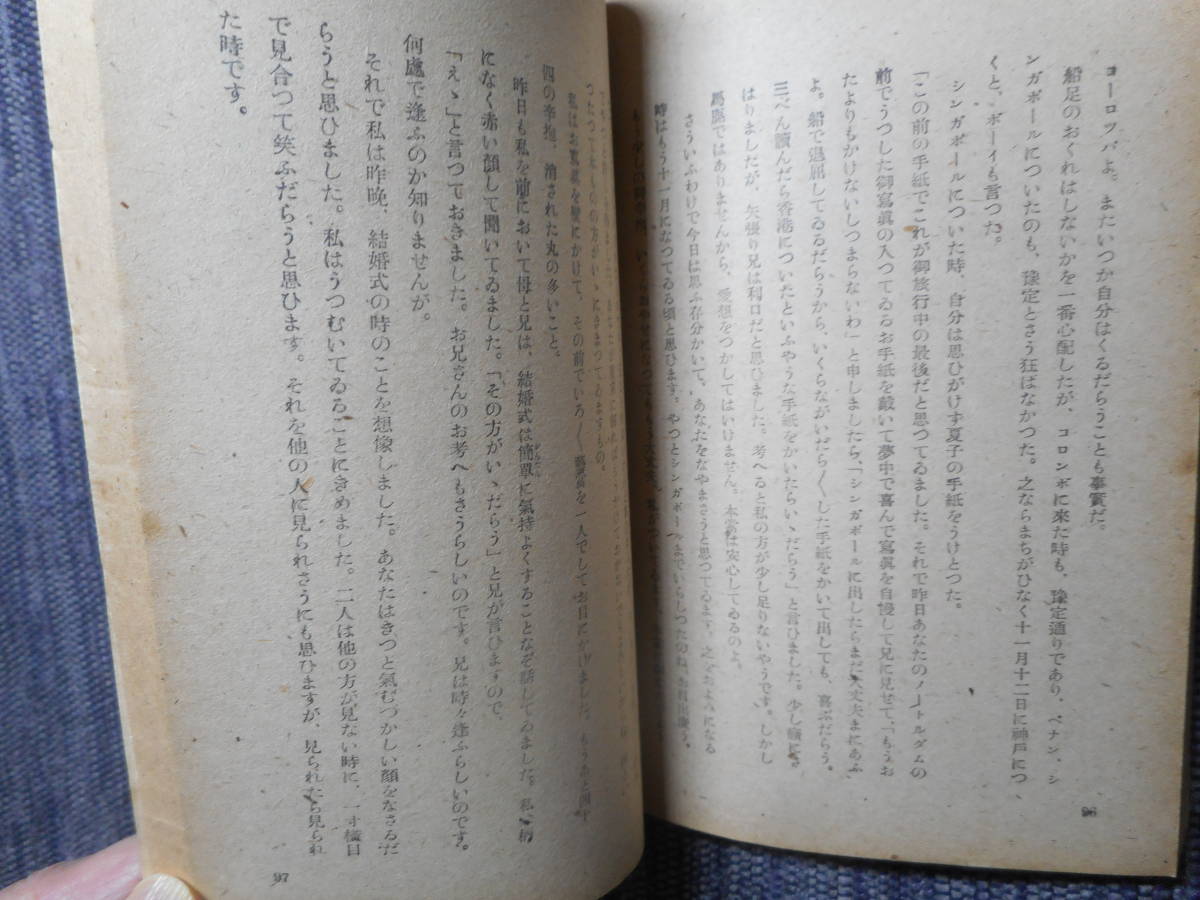 ヨーロツパよ。またいつか自分はくるだらうことも事實だ。
船足のおくれはしないかを一番心配したが、コロンボに來た時も、豫定通りであり、ペナン、シ
ンガポールについたのも、豫定とさう狂はなかつた。之ならまちがひなく十一月十二日に神戸につ
くと、ボーイも言つた。
シンガポールについた時、自分は思ひがけず夏子の手紙をうけとつた。
「この前の手紙でこれが御旅行中の最後だと思つてゐました。それで昨日あなたのノートルダムの
前でうつした御寫眞の入つてゐるお手紙を戴いて夢中で喜んで寫眞を自慢して兄に見せて、「もうお
たよりもかけないしつまらないわ」と申しましたら、「シンガポールに出したらまだ大丈夫まにあふ
よ。船で退屈してゐるだらうから、いくらながいだら〱した手紙をかいて出しても、喜ぶだらう。
三べん讀んだら香港についたといふやうな手紙をかいたらいゝだらう」と言ひました。少し癪にさ
はりましたが、矢張り兄は利口だと思ひました。考へると私の方が少し足りないやうです。しかし
馬鹿ではありませんから、愛想をつかしてはいけません。本當は安心してゐるのよ。
さういふわけで今日は思ふ存分かいて、あなたをなやまさうと思つてゐます。之をおよみになる
時はもう十一月になつてゐる頃と思ひます。やつとシンガポールまでいらしつたのね、お目出度う。
96
私はお寫眞を壁にかけて、その前でいろ〱藝當を一人でしてお目にかけました。もうあと四十
四の辛抱、消された丸の多いこと。
昨日も私を前において母と兄は、結婚式は簡單に氣持よくすることなぞ話してゐました。私、柄
かんたん
になく赤い顔して聞いてゐました。「その方がいゝだらう」と兄が言ひますので、
「えゝ」と言つておきました。お兄さんのお考へもさうらしいのです。兄は時々逢ふらしいのです。
何處で逢ふのか知りませんが。
それで私は昨晩、結婚式の時のことを想像しました。あなたはきつと氣むづかしい顔をなさるだ
らうと思ひました。私はうつむいてゐることにきめました。二人は他の方が見ない時に、一寸横目
で見合つて笑ふだらうと思ひます。それを他の人に見られさうにも思ひますが、見られたら見られ
た時です。
97